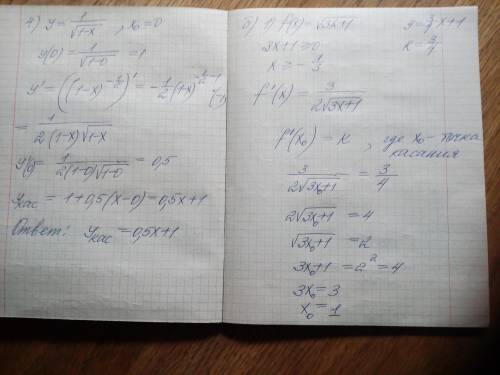 4) y = 1/√(1-x) , x₀ = 0
y(0) = 1/√(1-0) = 1
y' = ((1-x)^(-1/2))' = -1/2(1-x)^(-1/2-1) · (-1)
= 1/(2(1-x)√(1-x))
y'(0) = 1/(2(1-0)√(1-0)) = 0,5
yкас = 1+0,5(x-0) = 0,5x+1
Ответ: yкас = 0,5x+1
б) 1) f(x) = √(3x+1) y = 3/4 x+1
3x+1 ≥ 0 к = 3/4
x ≥ -1/3
f'(x) = 3/(2√(3x+1))
f'(x₀) = к , где x₀ - точка касания
3/(2√(3x₀+1)) = 3/4
2√(3x₀+1) = 4
√(3x₀+1) = 2
3x₀+1 = 2² = 4
3x₀ = 3
x₀ = 1